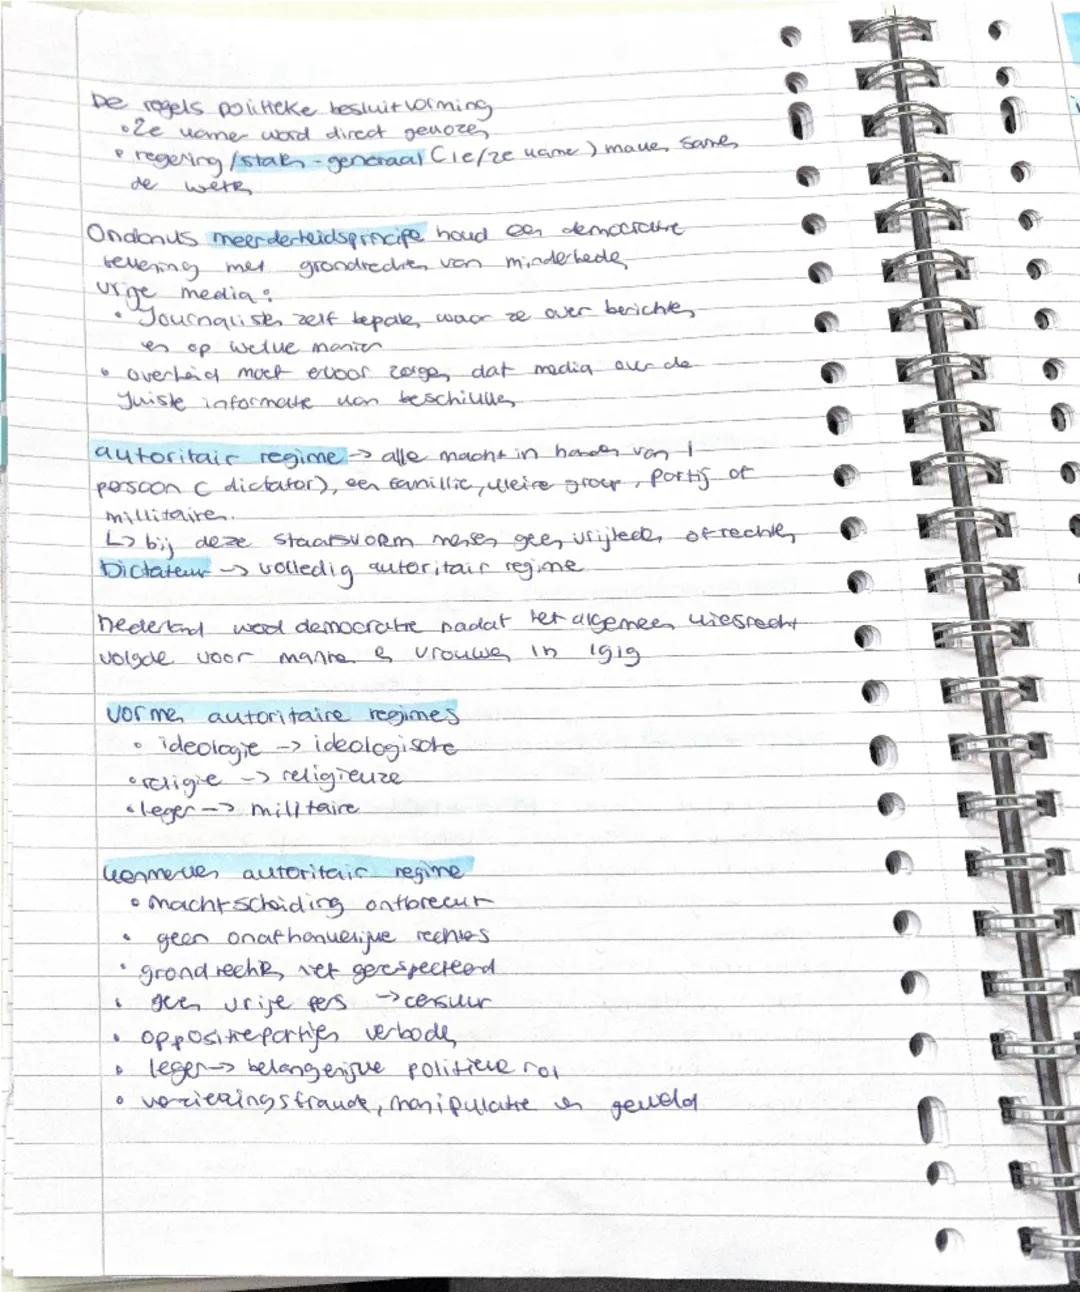 De regels politieke besluitvorming
• 2e kamer word direct gekozen
• regering/staten-generaal (1e/2e kame) maken samen
de wetten
Ondanks meerderheidsprincipe houd een democratie
rekening met grondrechten van minderheden
vrije media:
• Journalisten zelf bepalen waar ze over berichten
en op welke manier
• overheid moet ervoor zorgen dat media over de
juiste informatie kan beschikken
autoritair regime → alle macht in handen van 1
persoon (dictator), een familie, kleine groep, partij of
millitairen.
↳ bij deze staatsvorm mensen geen vrijheden of rechten
Dictatuur → volledig autoritair regime
Nederland werd democratie nadat het algemeen kiesrecht
volgde voor mannen & vrouwen in 1919
Vormen autoritaire regimes
• ideologie → ideologische
• religie → religieuze
• leger → militaire
kenmerken autoritair regime
• Machtscheiding ontbreekt
• geen onafhankelijke rechters
• grondrechten niet gerespecteerd
• geen vrije pers → censuur
• oppositiepartijen verboden
• leger → belangerijke politieke rol
• verkiezingsfraude, manipulatie en geweld